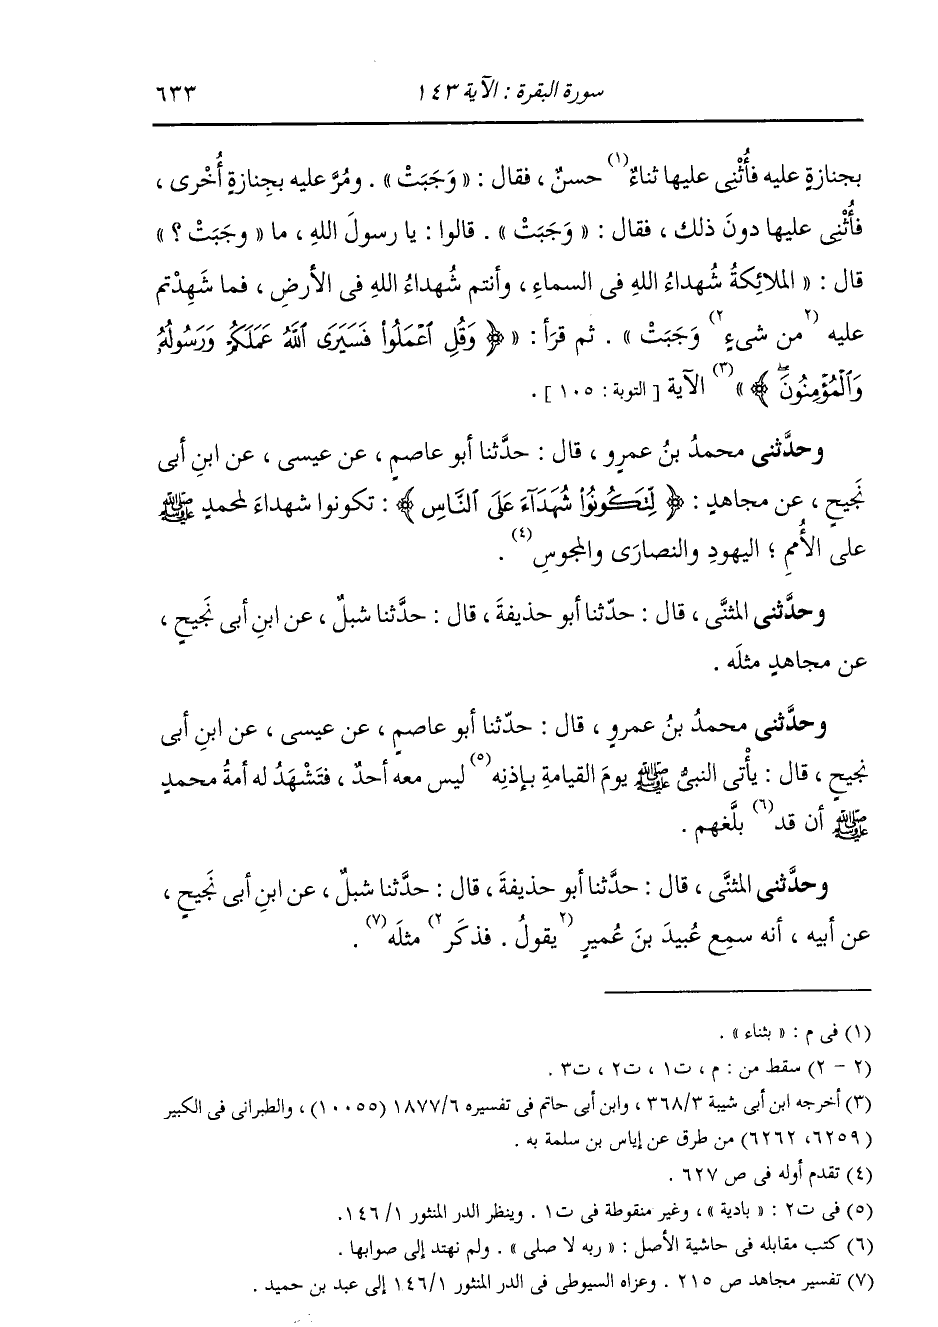 سورة البقرة : الآية ١٤٣ ٦٣٣
بجنازةٍ عليه فأُثْنِى عليها ثناءٌ(١) حسنٌ ، فقال : « وَجَبَتْ » . ومُرَّ عليه بجِنازةٍ أُخْرى ،
فأُثْنِى عليها دونَ ذلك ، فقال : « وَجَبَتْ » . قالوا : يا رسولَ اللهِ ، ما « وجَبَتْ ؟ »
قال : « الملائِكةُ شُهداءُ اللهِ فى السماءِ ، وأنتم شُهداءُ اللهِ فى الأرضِ ، فما شَهِدْتم
عليه (٢من شىءٍ٢) وَجَبَتْ » . ثم قرَأ : « ﴿ وَقُلِ ٱعْمَلُوا۟ فَسَيَرَى ٱللَّهُ عَمَلَكُمْ وَرَسُولُهُۥ
وَٱلْمُؤْمِنُونَۖ ﴾ »(٣) الآية [ التوبة : ١٠٥ ] .
وحدَّثنى محمدُ بنُ عمرٍو ، قال : حدَّثنا أبو عاصمٍ ، عن عيسى ، عن ابنِ أبى
نَجيحٍ ، عن مجاهدٍ : ﴿ لِّتَكُونُوا۟ شُهَدَآءَ عَلَى ٱلنَّاسِ ﴾ : تكونوا شهداءَ لمحمدٍ ﷺ
على الأُممِ ؛ اليهودِ والنصارَى والمجوسِ(٤) .
وحدَّثنى المثنَّى ، قال : حدّثنا أبو حذيفةَ ، قال : حدَّثنا شبلٌ ، عن ابنِ أبى نَجيحٍ ،
عن مجاهدٍ مثلَه .
وحدَّثنى محمدُ بنُ عمرٍو ، قال : حدّثنا أبو عاصمٍ ، عن عيسى ، عن ابنِ أبى
نجيحٍ ، قال : يأْتى النبىُّ ﷺ يومَ القيامةِ بإذنِه(٥) ليس معه أحدٌ ، فتَشْهَدُ له أمةُ محمدٍ
ﷺ أن قد(٦) بلَّغهم .
وحدَّثنى المثنَّى ، قال : حدَّثنا أبو حذيفةَ ، قال : حدَّثنا شبلٌ ، عن ابنِ أبى نَجيحٍ ،
عن أبيه ، أنه سمِع عُبيدَ بنَ عُميرٍ (٢يقولُ . فذكَر٢) مثلَه(٧) .
(١) فى م : « بثناء » .
(٢ - ٢) سقط من : م ، ت١ ، ت٢ ، ت٣ .
(٣) أخرجه ابن أبى شيبة ٣٦٨/٣ ، وابن أبى حاتم فى تفسيره ١٨٧٧/٦ (١٠٠٥٥) ، والطبرانى فى الكبير
(٦٢٥٩، ٦٢٦٢) من طرق عن إياس بن سلمة به .
(٤) تقدم أوله فى ص ٦٢٧ .
(٥) فى ت٢ : « بادية » ، وغير منقوطة فى ت١ . وينظر الدر المنثور ١/ ١٤٦.
(٦) كتب مقابله فى حاشية الأصل : « ربه لا صلى » . ولم نهتد إلى صوابها .
(٧) تفسير مجاهد ص ٢١٥ . وعزاه السيوطى فى الدر المنثور ١٤٦/١ إلى عبد بن حميد .